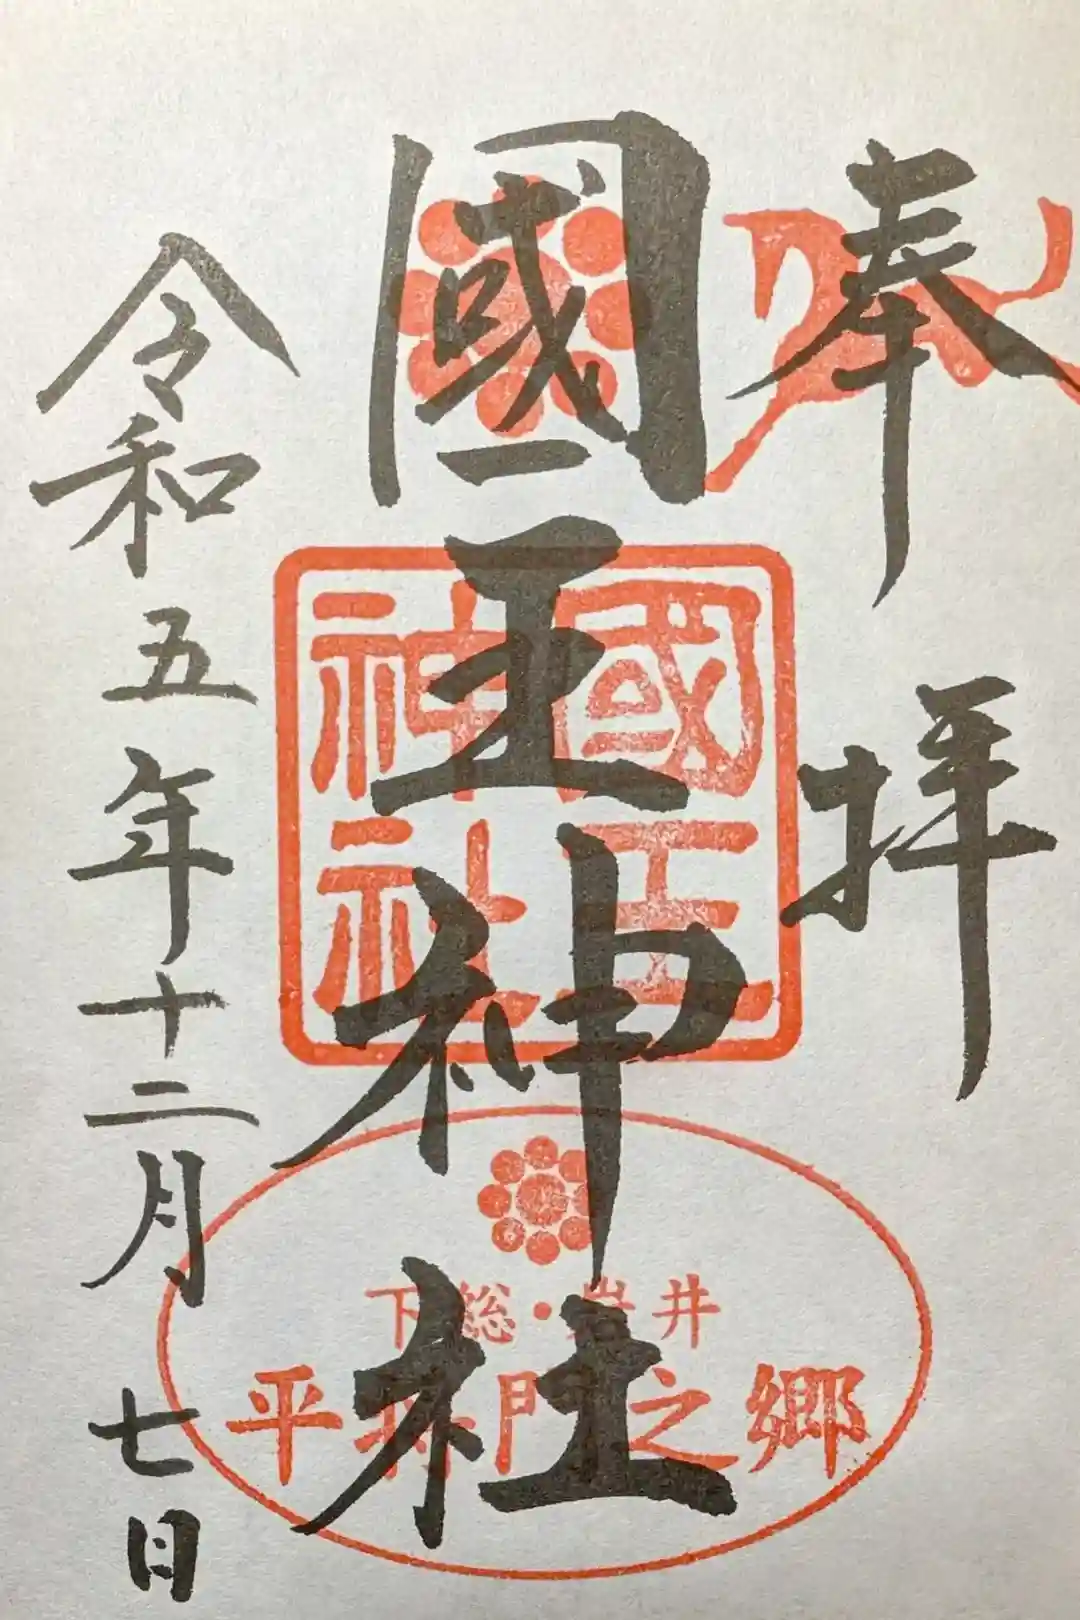 奉拝
國王神社
令和五年十二月七日
國王
神社
下総・岩井
平将門之郷